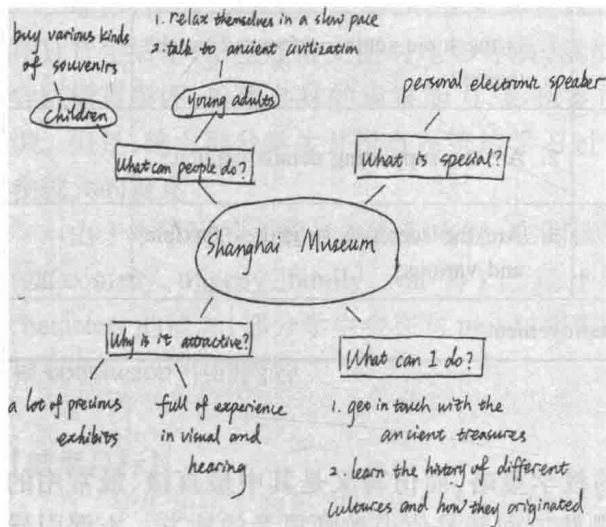 buy various kinds
of souvenirs
1. relax themselves in a slow pace
2. talk to ancient civilization
children
young adults
personal electronic speaker
What can people do?
What is special?
Shanghai Museum
Why is it attractive?
What can I do?
a lot of precious
exhibits
full of experience
in visual and
hearing
1. get in touch with the
ancient treasures
2. learn the history of different
cultures and how they originated